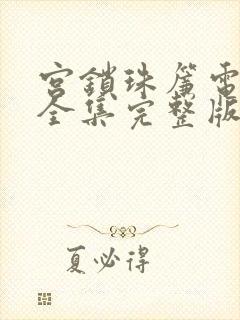 宮鎖珠簾電
全集完整版
夏必得